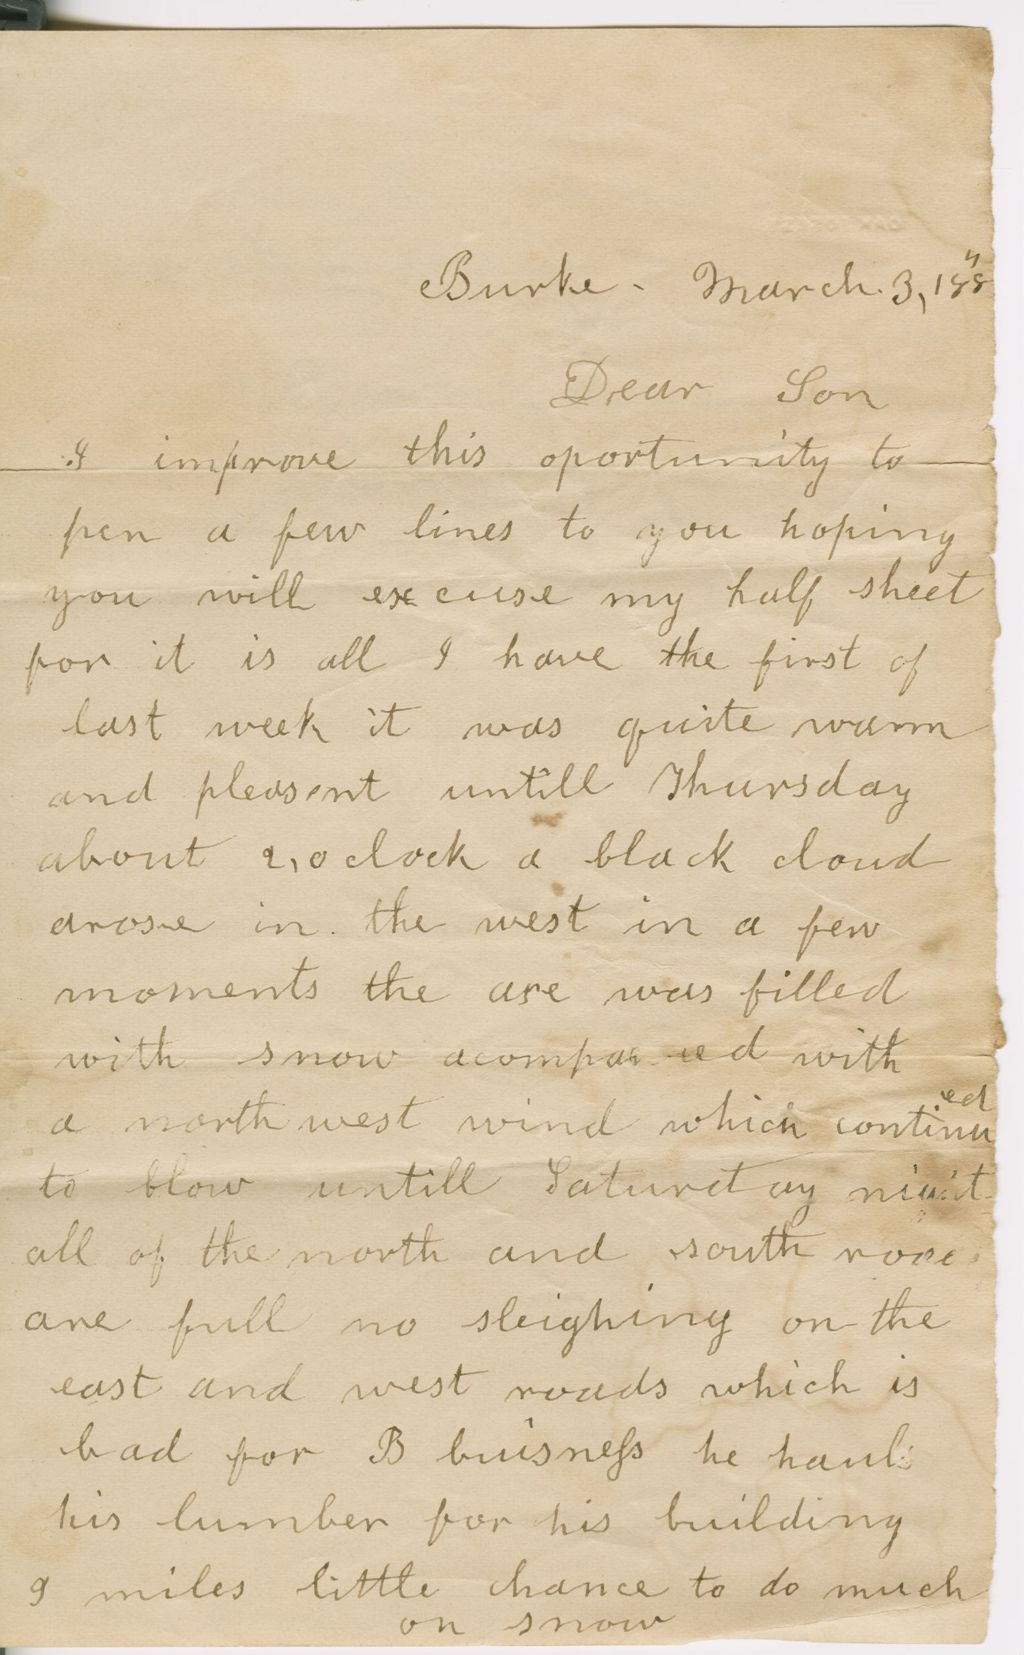 Burke - March. 3, 188
Dear Son
I improve this oportunity to
pen a few lines to you hoping
you will excuse my half sheet
for it is all I have the first of
last week it was quite warm
and pleasent untill Thursday
about 2, o clock a black cloud
arose in. the west in a few
moments the are was filled
with snow with
a north west wind which continued
to blow untill Saturday
all of the north and south
are full no sleighing on the
east and west roads which is
bad for B buisness he hauls
his lumber for his building
9 miles little chance to do much
on snow